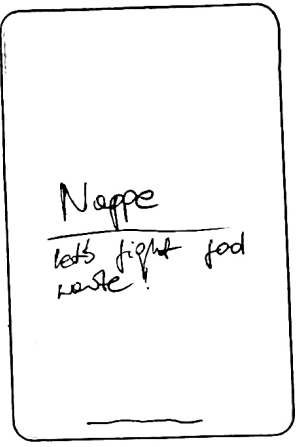 Nappe
let's fight food
waste!